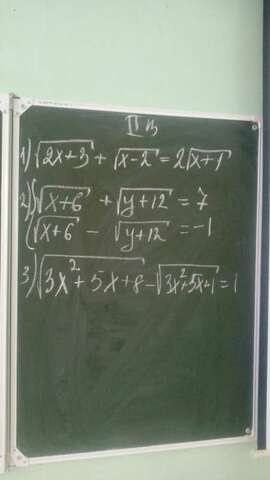 II в
1) √2x+3 + √x-2 = 2√x+1
2) { √x+6 + √y+12 = 7
√x+6 - √y+12 = -1
3) √3x²+5x+8 - √3x²+5x+1 = 1